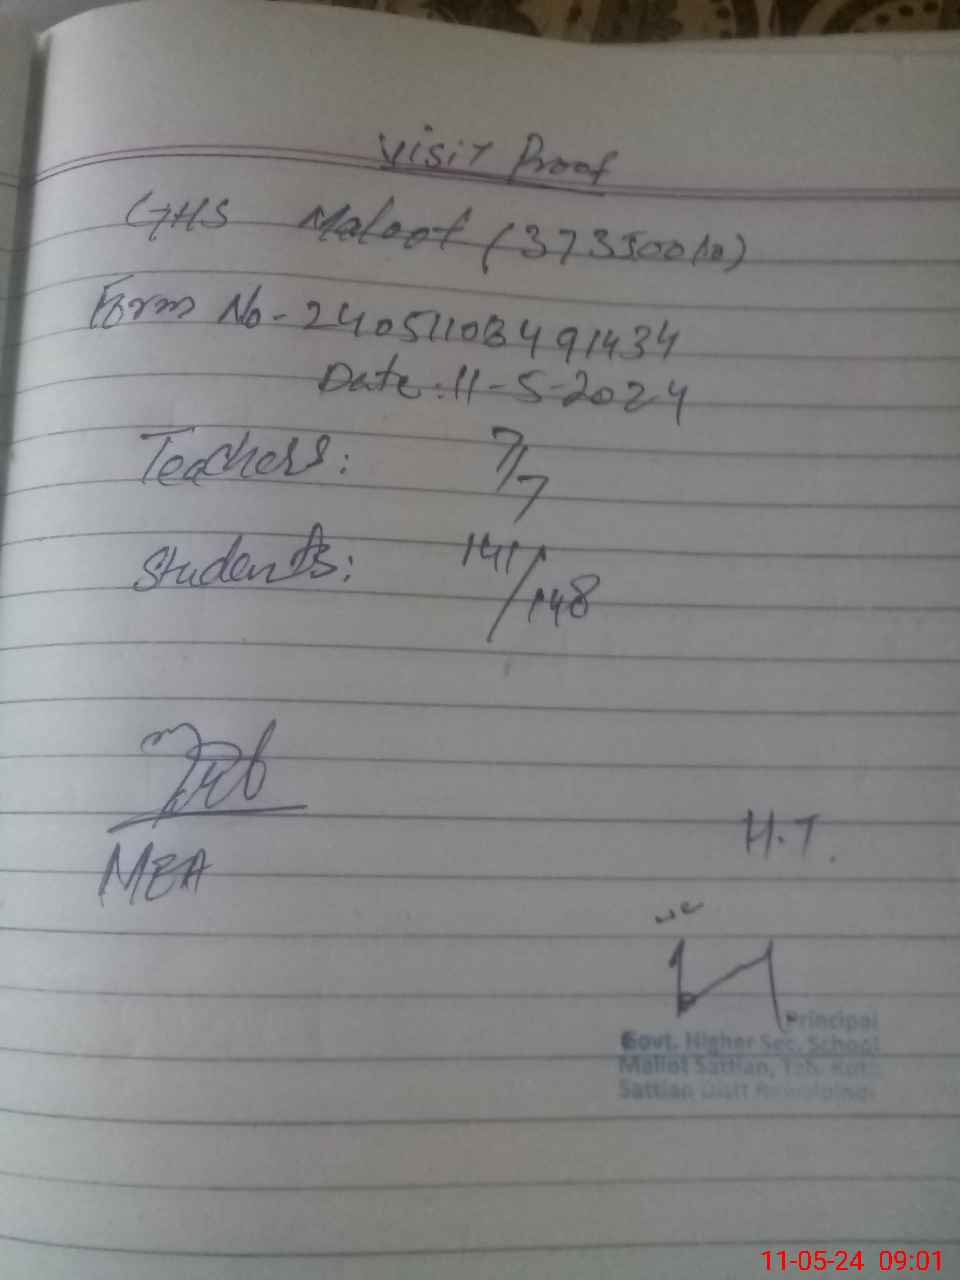 Visit Proof
GHS Maloot (37330010)
Form No - 24051108491434
Date: 11-5-2024
Teachers: 7/7
Students: 141/148
MEA
H.T.
Principal
Govt. Higher Sec. School
Maliot Sattian, Teh. Kotli
Sattian Distt Rawalpindi
11-05-24 09:01